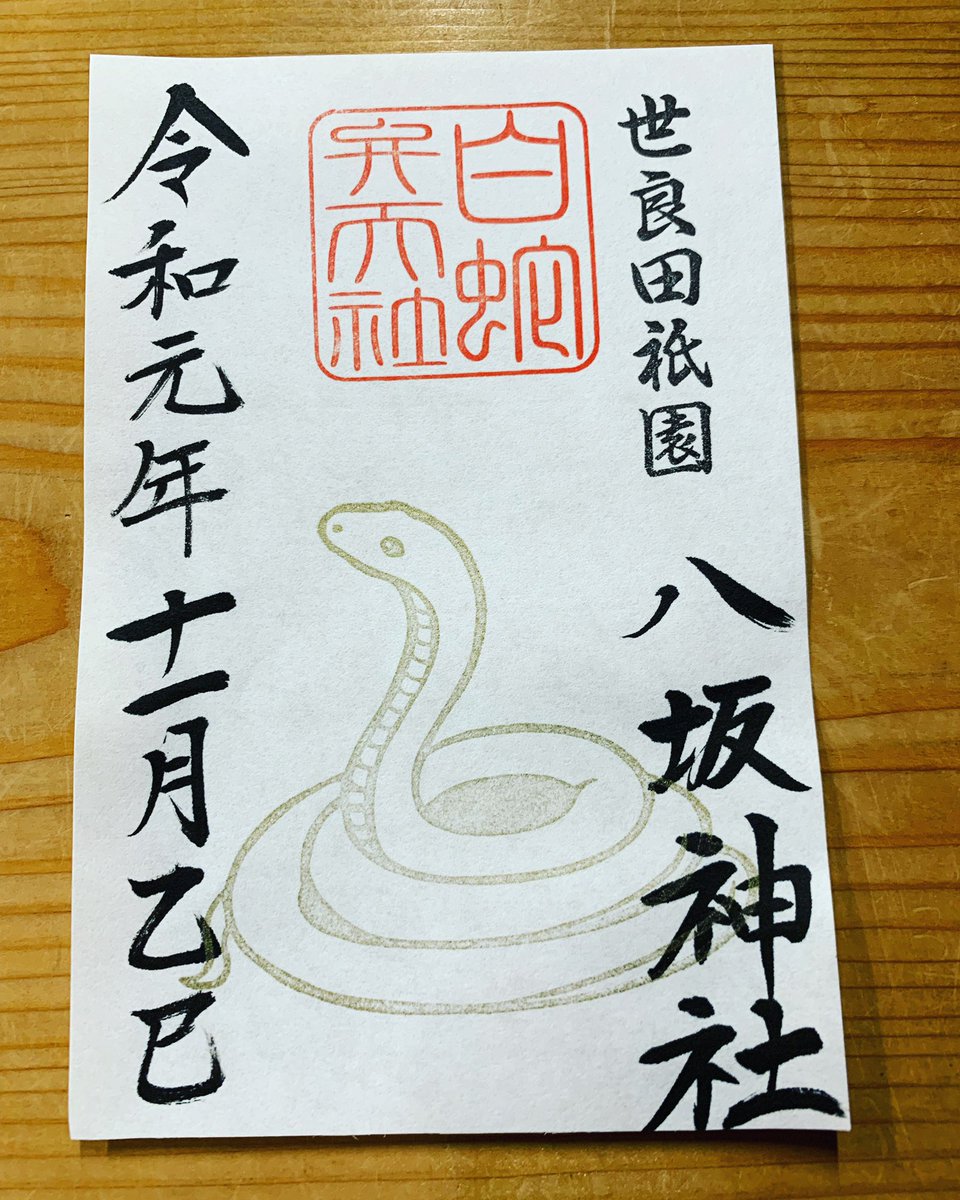 世良田祇園
八坂神社
白蛇
弁天社
令和元年十一月乙巳